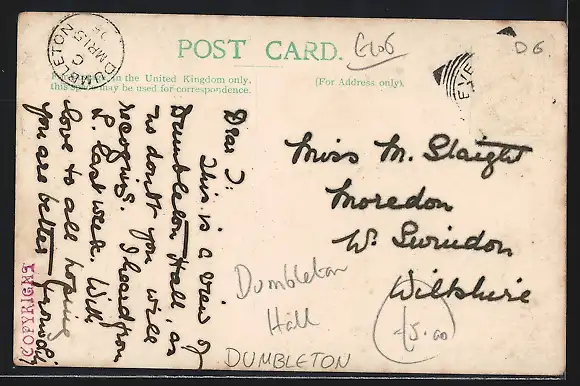 POST CARD.
Glos
D6
DUMBLETON
C
MR 15
For use in the United Kingdom only,
this space may be used for correspondence.
(For Address only).
EVE
Dear J:
This is a view of
Dumbleton Hall, as
no doubt you will
recognise. I heard from
L. last week. With
love to all hoping
you are better
Miss M. Staight
Moredon
W. Swindon
Wiltshire
Dumbleton
Hall
15.00
DUMBLETON
COPYRIGHT